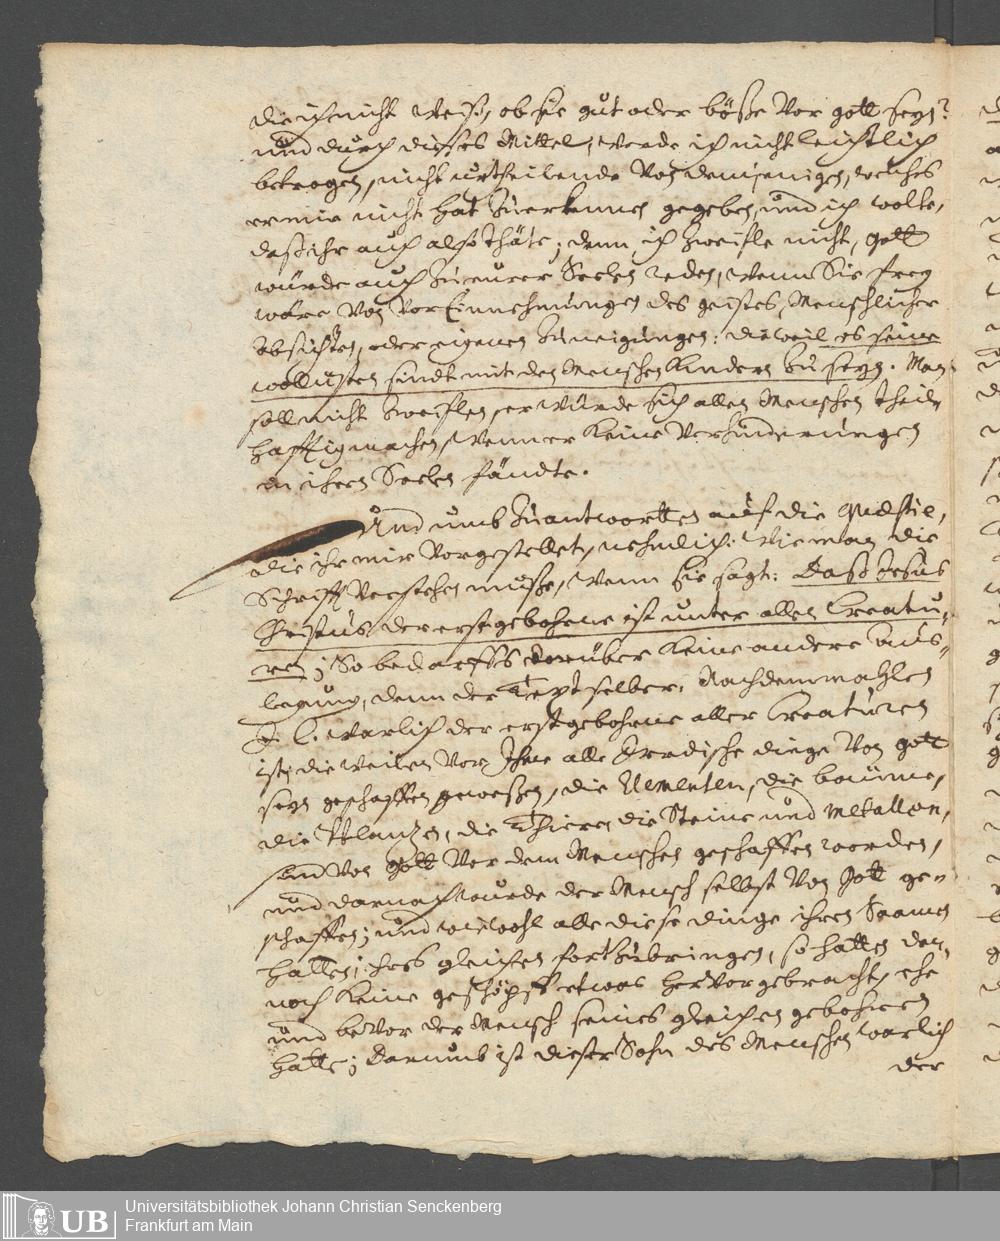 die ich nicht weiß, ob sie gut oder böße vor gott seyn?
und durch dieses Mittel, werde ich nicht leichtlich
betrogen, nicht urtheilende von demjenigen, welches
er mir nicht hat zuerkennen gegeben, und ich wolte,
daß ihr auch also thäte; denn ich zweifle nicht, gott
würde auch zu eurer Seelen reden, wenn Sie frey
wäre von vor Einnehmungen des geistes, Menschlicher
absichten, oder eigenen Zuneigungen: dieweil es seine
wollusten sindt mit den Menschen Kindern zu seyn. Man
soll nicht zweiflen, er würde sich allen Menschen theil-
hafftig machen, wenn er keine Verhinderungen
in ihren Seelen fändte.
Und umb zu antwortten auf die quæstie,
die ihr mir vorgestellet, nehmlich: Wie man die
Schrifft verstehen müße, wenn sie sagt: Daß Jesus
Christus der erstgebohrne ist unter allen Creatu-
ren; So bedarffs darüber keine andere aus-
legung, denn der Text selber. Nachdemmahlen
J. C. warlich der erstgebohrne aller Creaturen
ist, dieweilen vor Ihme alle Irrdische dinge von gott
seyn geschaffen geweßen, die Elementen, die bäume,
die Pflantzen, die Thieren, die Steine und Metallen,
sind von gott vor dem Menschen geschaffen worden,
und darnach wurde der Mensch selbst von Gott ge-
schaffen; und wiewohl alle diese dinge ihren Saamen
hatten, ihres gleichen forthzubringen, so hatten den-
noch keine geschöpff etwas hervorgebracht, ehe
und bevor der Mensch seines gleichen gebohren
hatte; Darumb ist dieser Sohn des Menschen warlich
der
UB
Universitätsbibliothek Johann Christian Senckenberg
Frankfurt am Main